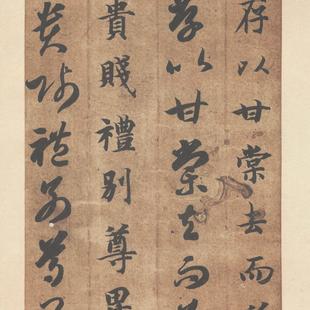 存以甘棠去而
存以甘棠去而
貴賤禮別尊卑
貴賤禮別尊